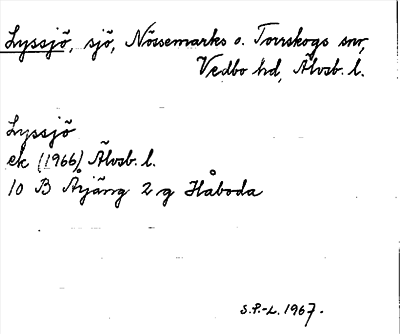 Lyssjö, sjö, Nössemarks o. Torrskogs snr,
Vedbo hd, Älvsb. l.
Lyssjö
ek (1966) Älvsb. l.
10 B Årjäng 2 g Håboda
S.P.-L. 1967.